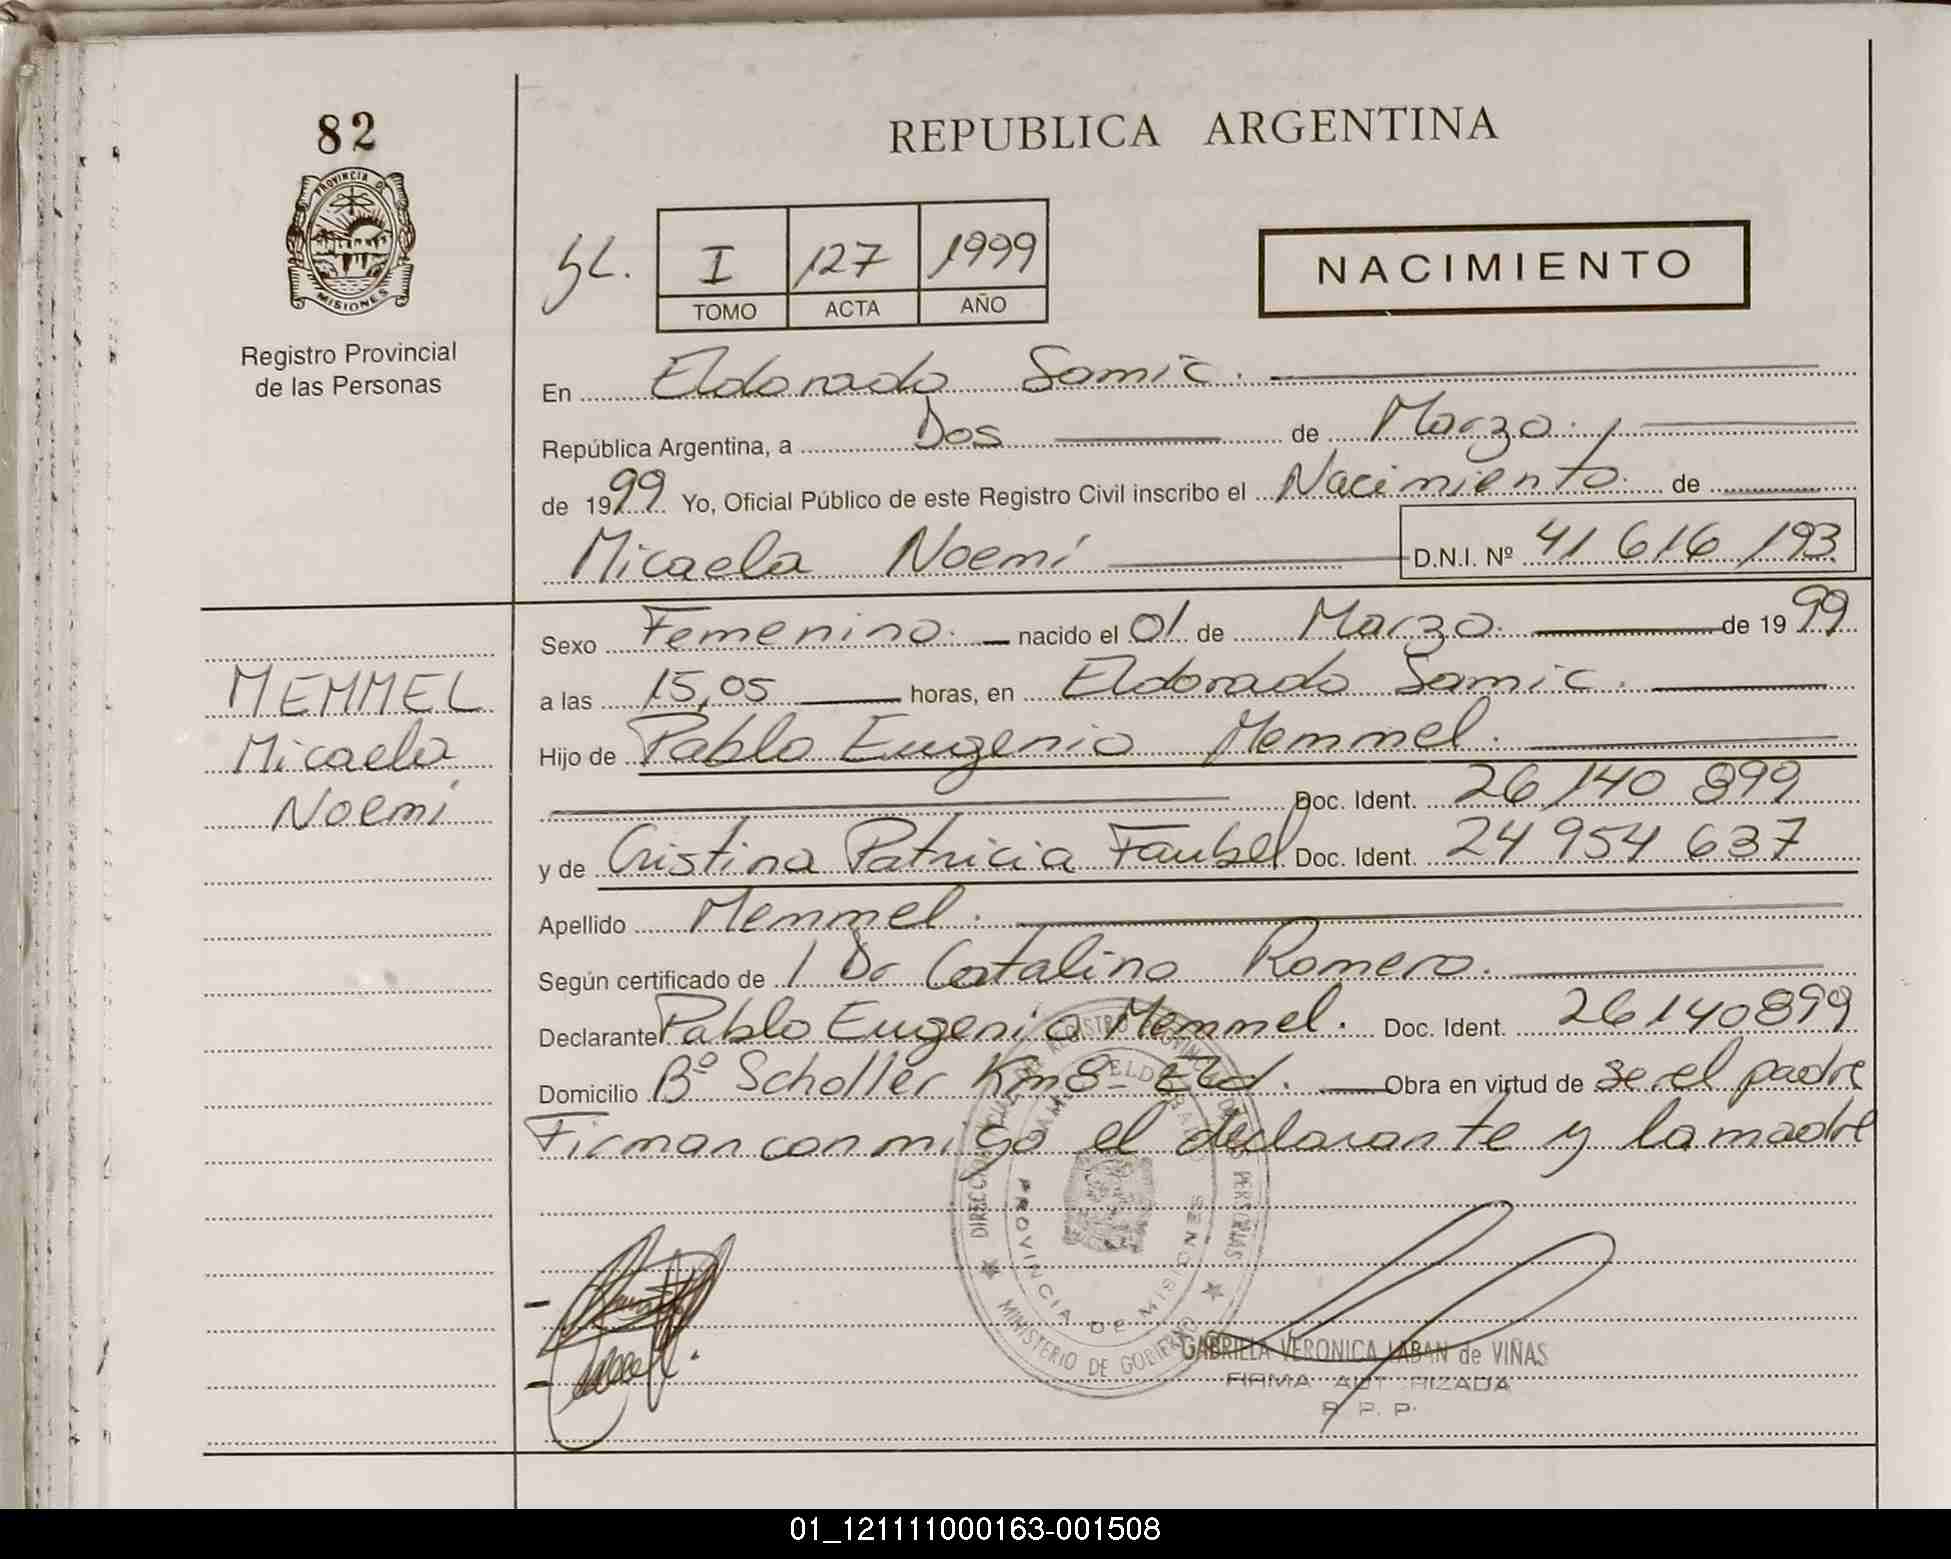 82
PROVINCIA DE
MISIONES
Registro Provincial
de las Personas
REPUBLICA ARGENTINA
I 127 1999
TOMO ACTA AÑO
NACIMIENTO
En Eldorado Samic.
República Argentina, a Dos de Marzo.
de 1999 Yo, Oficial Público de este Registro Civil inscribo el Nacimiento. de
Micaela Noemí D.N.I. Nº 41 616 193
Sexo Femenino. nacido el 01 de Marzo. de 1999
MEMMEL
Micaela
Noemí
a las 15,05 horas, en Eldorado Samic.
Hijo de Pablo Eugenio Memmel.
Doc. Ident. 26 140 899
y de Cristina Patricia Faubel Doc. Ident. 24 954 637
Apellido Memmel.
Según certificado de Dr Catalino Romero.
Declarante Pablo Eugenio Memmel. Doc. Ident. 26140899
Domicilio Bº Scholler Km 8- Eld. Obra en virtud de se el padre
Firman conmigo el declarante y la madre
PROVINCIA DE MISIONES
MINISTERIO DE GOBIERNO
GABRIELA VERONICA LABAN de VIÑAS
FIRMA AUTORIZADA
R. P. P.
01_121111000163-001508